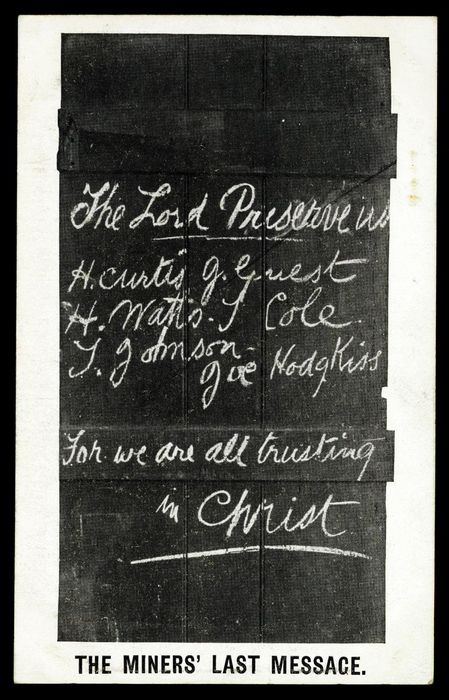 The Lord Preserve us
H. Curtis J. Guest
H. Watts. T Cole.
T. Johnson -
Joe Hodgkiss
For we are all trusting
in Christ
THE MINERS' LAST MESSAGE.